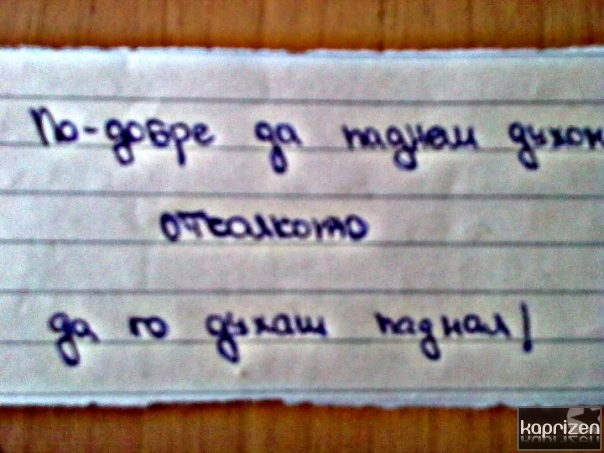 По-добре да паднем духом
отколкото
да го духаш паднал!
kaprizen